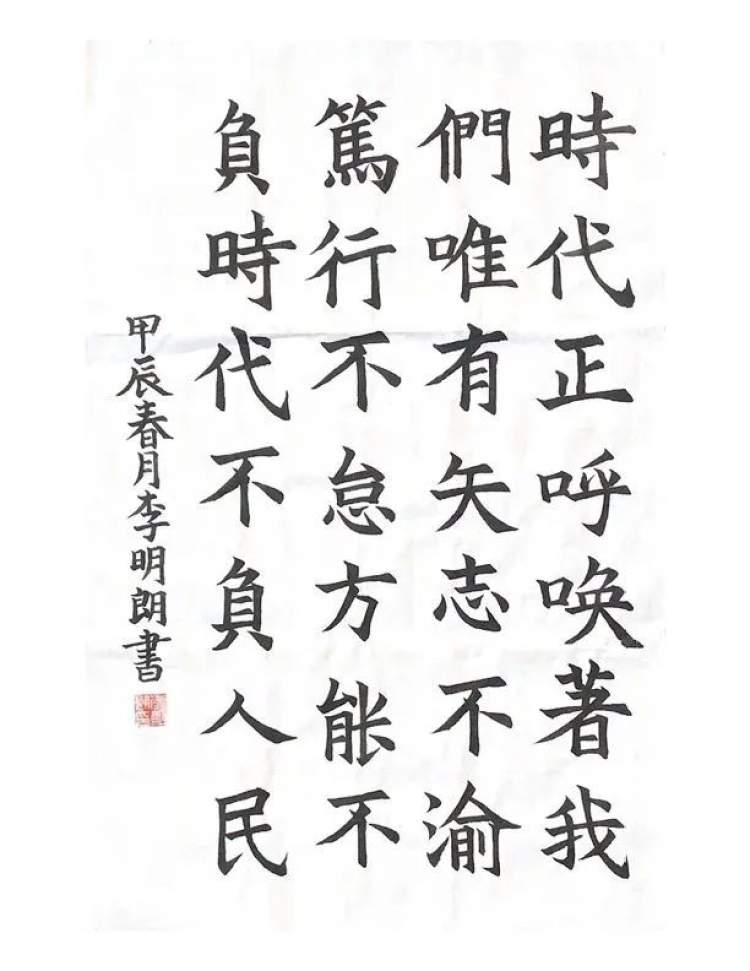 時代正呼唤著我
們唯有矢志不渝
篤行不怠方能不
負時代不負人民
甲辰春月李明朗書